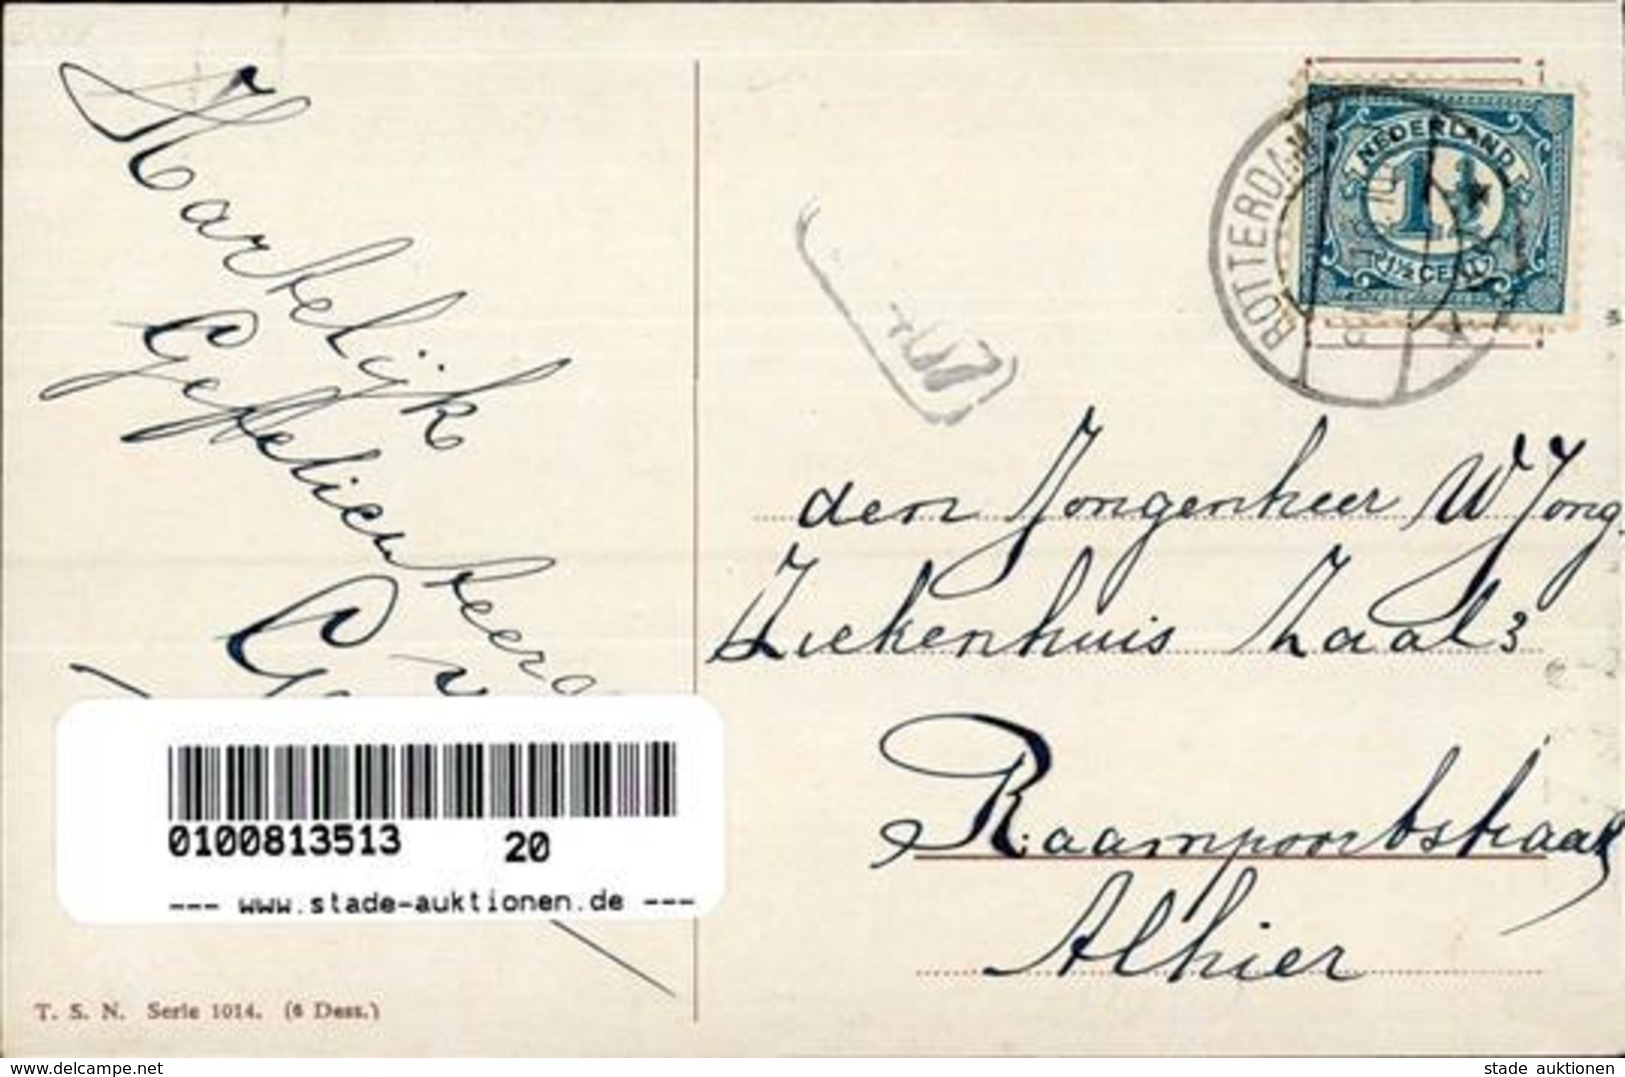 Hartelijk
Gefeliciteerd
ROTTERDAM
NEDERLAND
1½
1½ CENT
den Jongenheer W Jong
Ziekenhuis Zaal 3
Raampoortstraat
Alhier
0100813513 20
--- www.stade-auktionen.de ---
T. S. N. Serie 1014. (6 Dess.)
www.delcampe.net
stade auktionen